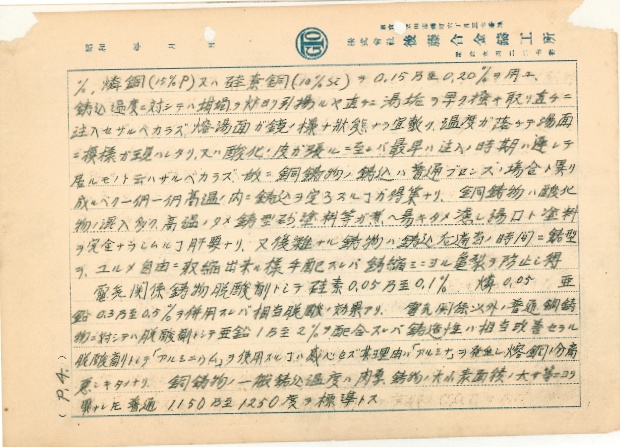 昭和 年 月 日
株式会社 後藤合金鋳工所
%、燐銅(15%P)又ハ硅素銅(10%Si)ヲ0.15乃至0.20%ヲ用エ、
鋳込温度ニ対シテハ坩堝ヲ炉ヨリ引揚ルヤ直チニ湯垢ヲ早ク掻キ取リ直チニ
注入セザルベカラズ 熔湯面ガ鏡ノ様ナ状態ナラ宜敷ク、温度ガ落チテ湯面
ニ模様ガ現ハレタリ、又ハ酸化ノ皮ガ張ルニ至レバ最早ハ注入ノ時期ハ遅レテ
居ルモノト云ハザルベカラズ 故ニ銅鋳物ノ鋳込ハ普通ブロンズノ場合ト異リ
成ルベク一個一個高温ノ内ニ鋳込ヲ完了スルヿガ得策ナリ、銅鋳物ハ酸化
物ノ混入多ク、高温ノタメ鋳型砂塗料等ガ煮ヘ易キタメ 湯口ト塗料
ヲ完全ナラシムルヿ肝要ナリ、又複雑ナル鋳物ハ鋳込後適当ノ時間ニ鋳型
ヲユルメ自由ニ収縮出来ル様手配スレバ鋳縮ミニヨル亀裂ヲ防止シ得
電気関係鋳物脱酸剤トシテ硅素0.05乃至0.1% 燐0.05 亜
鉛0.3乃至0.5%ヲ併用スレバ相当脱酸ノ効果アリ、電気関係以外ノ普通銅鋳
物ニ対シテハ脱酸剤トシテ亜鉛1乃至2%ヲ配合スレバ鋳造性ハ相当改善セラル
脱酸剤トシテ「アルミニウム」ヲ使用スルヿハ感心セズ其理由ハ「アルミナ」ヲ発生シ熔銅ノ分離
悪シキタメナリ、銅鋳物ノ一般鋳込温度ハ肉厚、鋳物ノ表面積ノ大サ等ニヨリ
異ナレ𪜈普通1150乃至1250度ヲ標準トス
(P.4.)